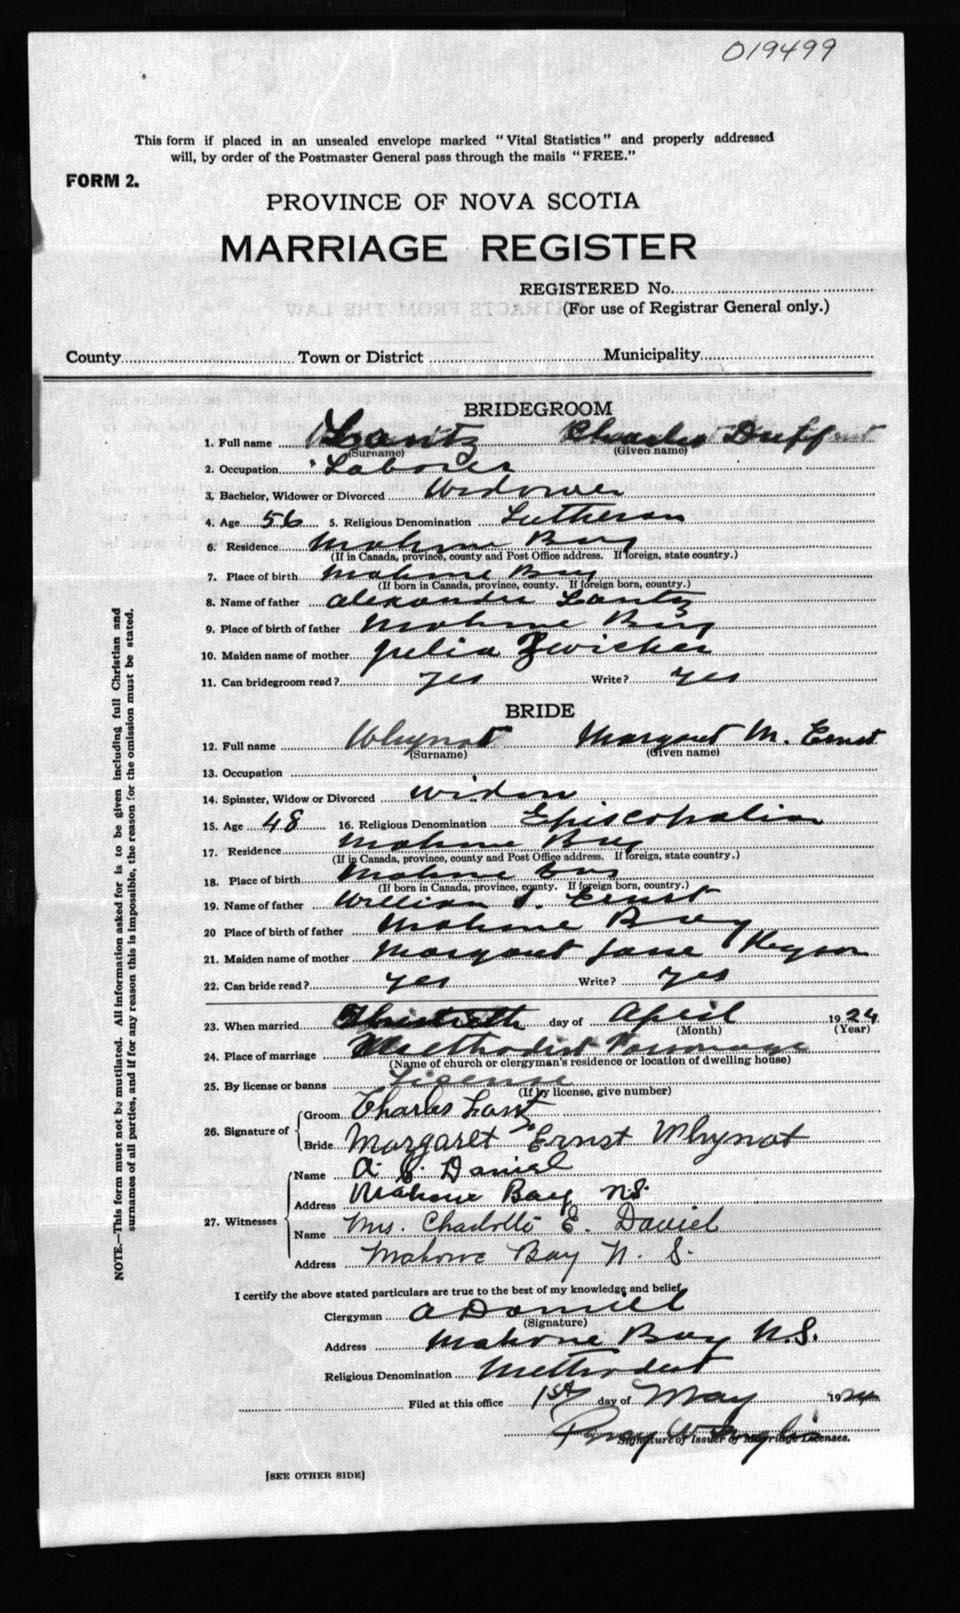 019499
This form if placed in an unsealed envelope marked "Vital Statistics" and properly addressed
will, by order of the Postmaster General pass through the mails "FREE."
FORM 2.
PROVINCE OF NOVA SCOTIA
MARRIAGE REGISTER
REGISTERED No.
(For use of Registrar General only.)
County Town or District Municipality
BRIDEGROOM
1. Full name Lantz Charles Duff
(Surname) (Given name)
2. Occupation Laborer
3. Bachelor, Widower or Divorced Widower
4. Age 56 5. Religious Denomination Lutheran
6. Residence Mahone Bay
(If in Canada, province, county and Post Office address. If foreign, state country.)
7. Place of birth Mahone Bay
(If born in Canada, province, county. If foreign born, country.)
8. Name of father Alexander Lantz
9. Place of birth of father Mahone Bay
10. Maiden name of mother Julia Zwicker
11. Can bridegroom read? yes Write? yes
BRIDE
12. Full name Whynot Margaret M. Ernst
(Surname) (Given name)
13. Occupation
14. Spinster, Widow or Divorced widow
15. Age 48 16. Religious Denomination Episcopalian
17. Residence Mahone Bay
(If in Canada, province, county and Post Office address. If foreign, state country.)
18. Place of birth Mahone Bay
(If born in Canada, province, county. If foreign born, country.)
19. Name of father William Ernst
20 Place of birth of father Mahone Bay
21. Maiden name of mother Margaret Jane Keyson
22. Can bride read? yes Write? yes
23. When married Thirtieth day of April 1924
(Month) (Year)
24. Place of marriage Methodist Parsonage
(Name of church or clergyman's residence or location of dwelling house)
25. By license or banns License
(If by license, give number)
26. Signature of
Groom Charles Lantz
Bride Margaret Ernst Whynot
27. Witnesses
Name A. C. Daniel
Address Mahone Bay NS.
Name Mrs. Charlotte E. Daniel
Address Mahone Bay N. S.
I certify the above stated particulars are true to the best of my knowledge and belief.
Clergyman A Daniel
(Signature)
Address Mahone Bay N.S.
Religious Denomination Methodist
Filed at this office 1st day of May 1924
Signature of Issuer of Marriage Licenses.
[SEE OTHER SIDE]
NOTE.—This form must not be mutilated. All information asked for is to be given including full Christian and
surnames of all parties, and if for any reason this is impossible, the reason for the omission must be stated.